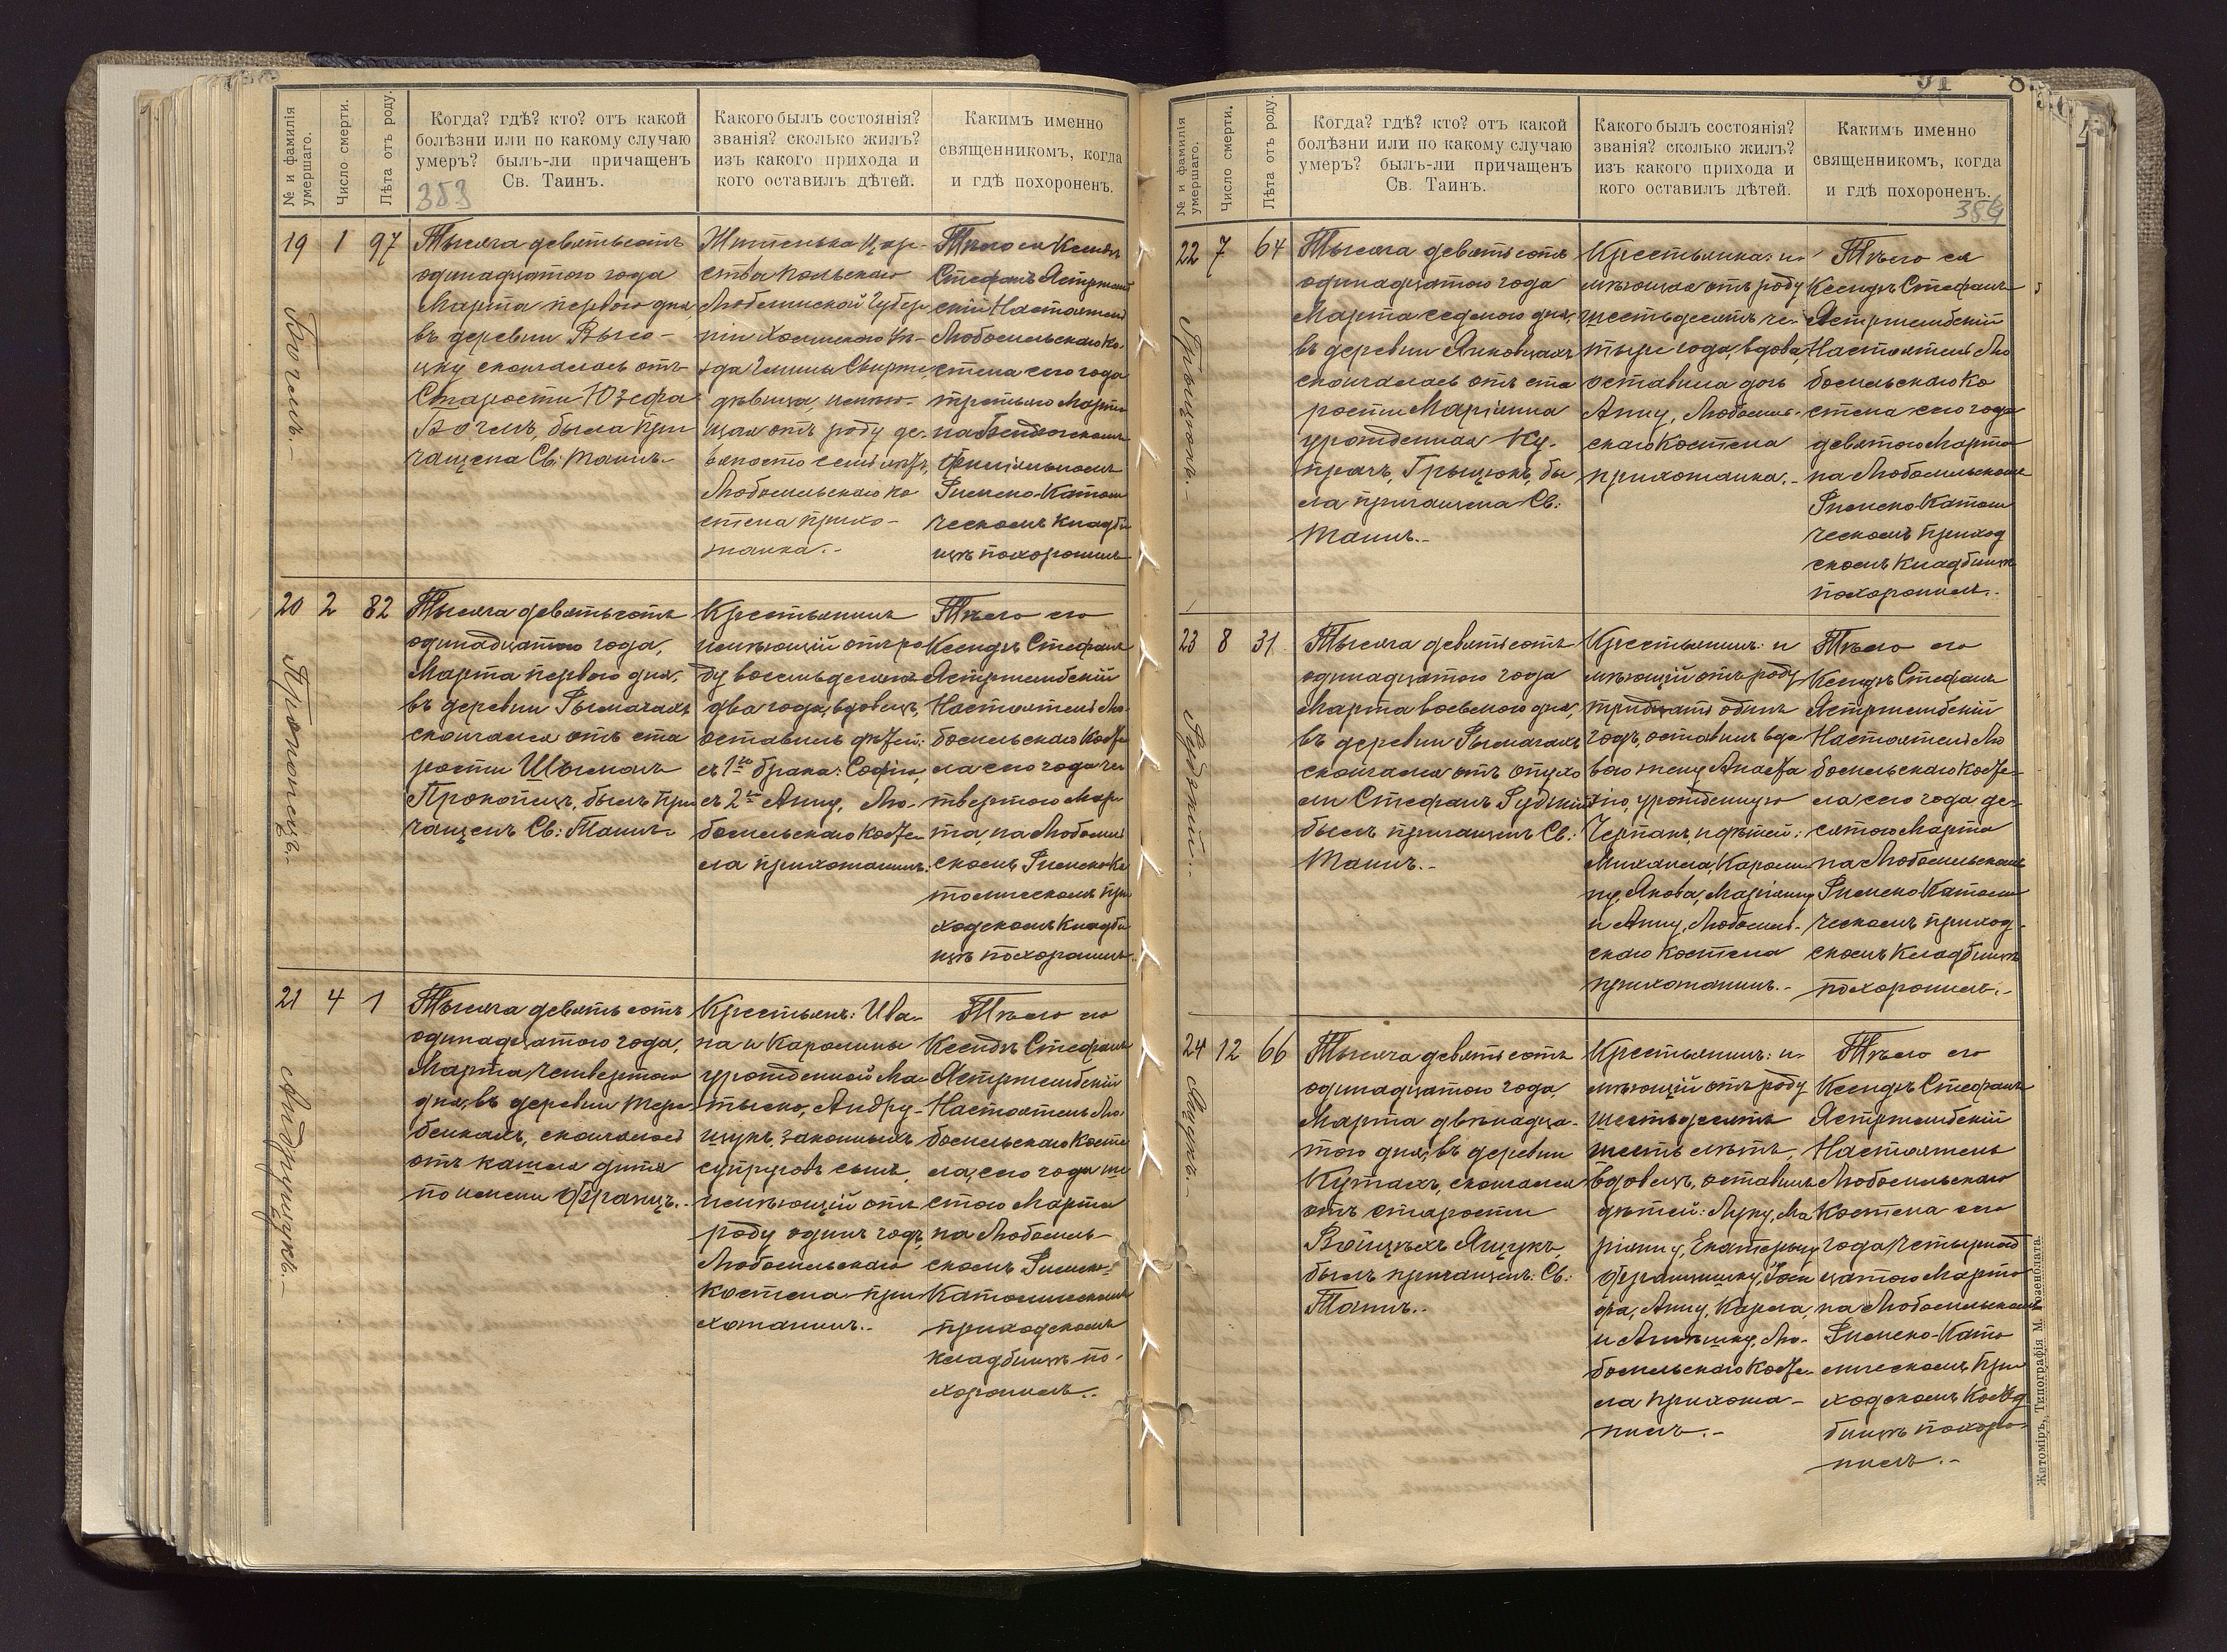 № и фамилія умершаго.
Число смерти.
Лѣта отъ роду.
Когда? гдѣ? кто? отъ какой
болѣзни или по какому случаю
умеръ? былъ-ли причащенъ
Св. Таинъ.
353
Какого былъ состоянія?
званія? сколько жилъ?
изъ какого прихода и
кого оставилъ дѣтей.
Какимъ именно
священникомъ, когда
и гдѣ похороненъ.
19
1
97
Тысяча девятьсотъ
одинадцатого года
Марта перваго дня
въ деревни Высо-
цку скончалась отъ
Старости Юзефа
была при
чащена Св: Таинъ.
Жителька Цар-
ства польскаго
Люблинской Губер
ніи Холмскаго Уѣ-
зда Гмины
дѣвица, имѣю-
щая отъ роду де-
вяносто семь лѣтъ,
Любомльскаго ко
стела прихо-
жанка.-
Тѣло ея Ксендзъ
Стефанъ Ястржемб
скій Настоятель
Любомльскаго Ко
стела сего года
третьяго Марта
на
филіальномъ
Римско-Католи
ческомъ Кладби
щѣ похоронилъ
20
2
82
Прокопецъ.
Тысяча девятьсотъ
одинадцатого года,
Марта перваго дня,
въ деревни Рымачахъ
скончался отъ ста
рости Шымонъ
Прокопецъ, былъ при
чащенъ Св: Таинъ
Крестьянинъ
имѣющій отъ ро
ду восемьдесятъ
два года, вдовецъ,
оставилъ дѣтей:
съ 1го брака: Софію,
съ 2го Анну, Лю-
бомльскаго Косте
ла прихожанинъ.
Тѣло его
Ксендзъ Стефанъ
Ястржембскій
Настоятель Лю-
бомльскаго Косте
ла сего года че
твертого Мар
та, на Любомль
скомъ Римско-Ка
толическомъ при
ходскомъ Кладби
щѣ похоронилъ.
21
4
1
Андрущукъ.-
Тысяча девятьсотъ
одинадцатого года,
Марта четвертого
дня, въ деревни Тере
бейкахъ, скончалось
отъ кашля дитя
по имени Францъ.-
Крестьянъ: Ива-
на и Каролины
урожденной Ма-
тысько, Андру-
щукъ, законныхъ
супруговъ сынъ,
имѣющій отъ
роду одинъ годъ,
Любомльскаго
Костела при
хожанинъ.-
Тѣло его
Ксендзъ Стефанъ
Ястржембскій
Настоятель Лю-
бомльскаго Косте
ла, сего года ше
стого Марта
на Любомль-
скомъ Римско-
Католическомъ
приходскомъ
кладбищѣ по-
хоронилъ.-
№ и фамилія умершаго.
Число смерти.
Лѣта отъ роду.
Когда? гдѣ? кто? отъ какой
болѣзни или по какому случаю
умеръ? былъ-ли причащенъ
Св. Таинъ.
Какого былъ состоянія?
званія? сколько жилъ?
изъ какого прихода и
кого оставилъ дѣтей.
Какимъ именно
священникомъ, когда
и гдѣ похороненъ.
354
22
7
64
Грыцюкъ.-
Тысяча девятьсотъ
одинадцатого года
Марта седмого дня,
въ деревни Янковцахъ
скончалась отъ ста
рости Маріанна
урожденная Ку-
прачъ, Грыцюкъ, бы
ла причащена Св:
Таинъ.-
Крестьянка: и-
мѣющая отъ роду
шестьдесятъ че-
тыре года, вдова,
оставила дочь
Анну, Любомль-
скаго Костела
прихожанка.-
Тѣло ея
Ксендзъ Стефанъ
Ястржембскій
Настоятель Лю
бомльскаго Ко
стела сего года
девятого Марта
на Любомльскомъ
Римско-Католи
ческомъ приход
скомъ Кладбищѣ
похоронилъ.
23
8
31
Рудзкій.-
Тысяча девятьсотъ
одинадцатого года
Марта восьмого дня,
въ деревни Рымачахъ
скончался отъ опухо
ли Стефанъ Рудзкій
былъ причащенъ Св:
Таинъ.-
Крестьянинъ: и
мѣющій отъ роду
тридцать одинъ
годъ, оставилъ вдо
вою жену Анаста
зію, урожденную
Черпакъ, и дѣтей:
Михаила, Кароли
ну, Якова, Маріанну
и Анну, Любомль-
скаго Костела
прихожанинъ.-
Тѣло его
Ксендзъ Стефанъ
Ястржембскій
Настоятель Лю
бомльскаго Косте
ла сего года де-
сятого Марта
на Любомльскомъ
Римско-Католи
ческомъ приход-
скомъ Кладбищѣ
похоронилъ.-
24
12
66
Ящукъ.-
Тысяча девятьсотъ
одинадцатого года,
Марта двѣнадца-
того дня, въ деревни
Кутахъ, скончался
отъ старости
Войцѣхъ Ящукъ,
былъ причащенъ: Св:
Таинъ.-
Крестьянинъ: и-
мѣющій отъ роду
шестьдесятъ
шесть лѣтъ,
вдовецъ, оставилъ
дѣтей: Луку, Ма
ріанну, Екатерыну
Францишку,
Анну, Кароля,
и Агнѣшку, Лю-
бомльскаго Косте
ла прихожа-
нинъ.-
Тѣло его
Ксендзъ Стефанъ
Ястржембскій
Настоятель
Любомльскаго
Костела сего
года четырнад
цатого Марта
на Любомльскомъ
Римско-Като
лическомъ при
ходскомъ
бищѣ похоро-
нилъ.-